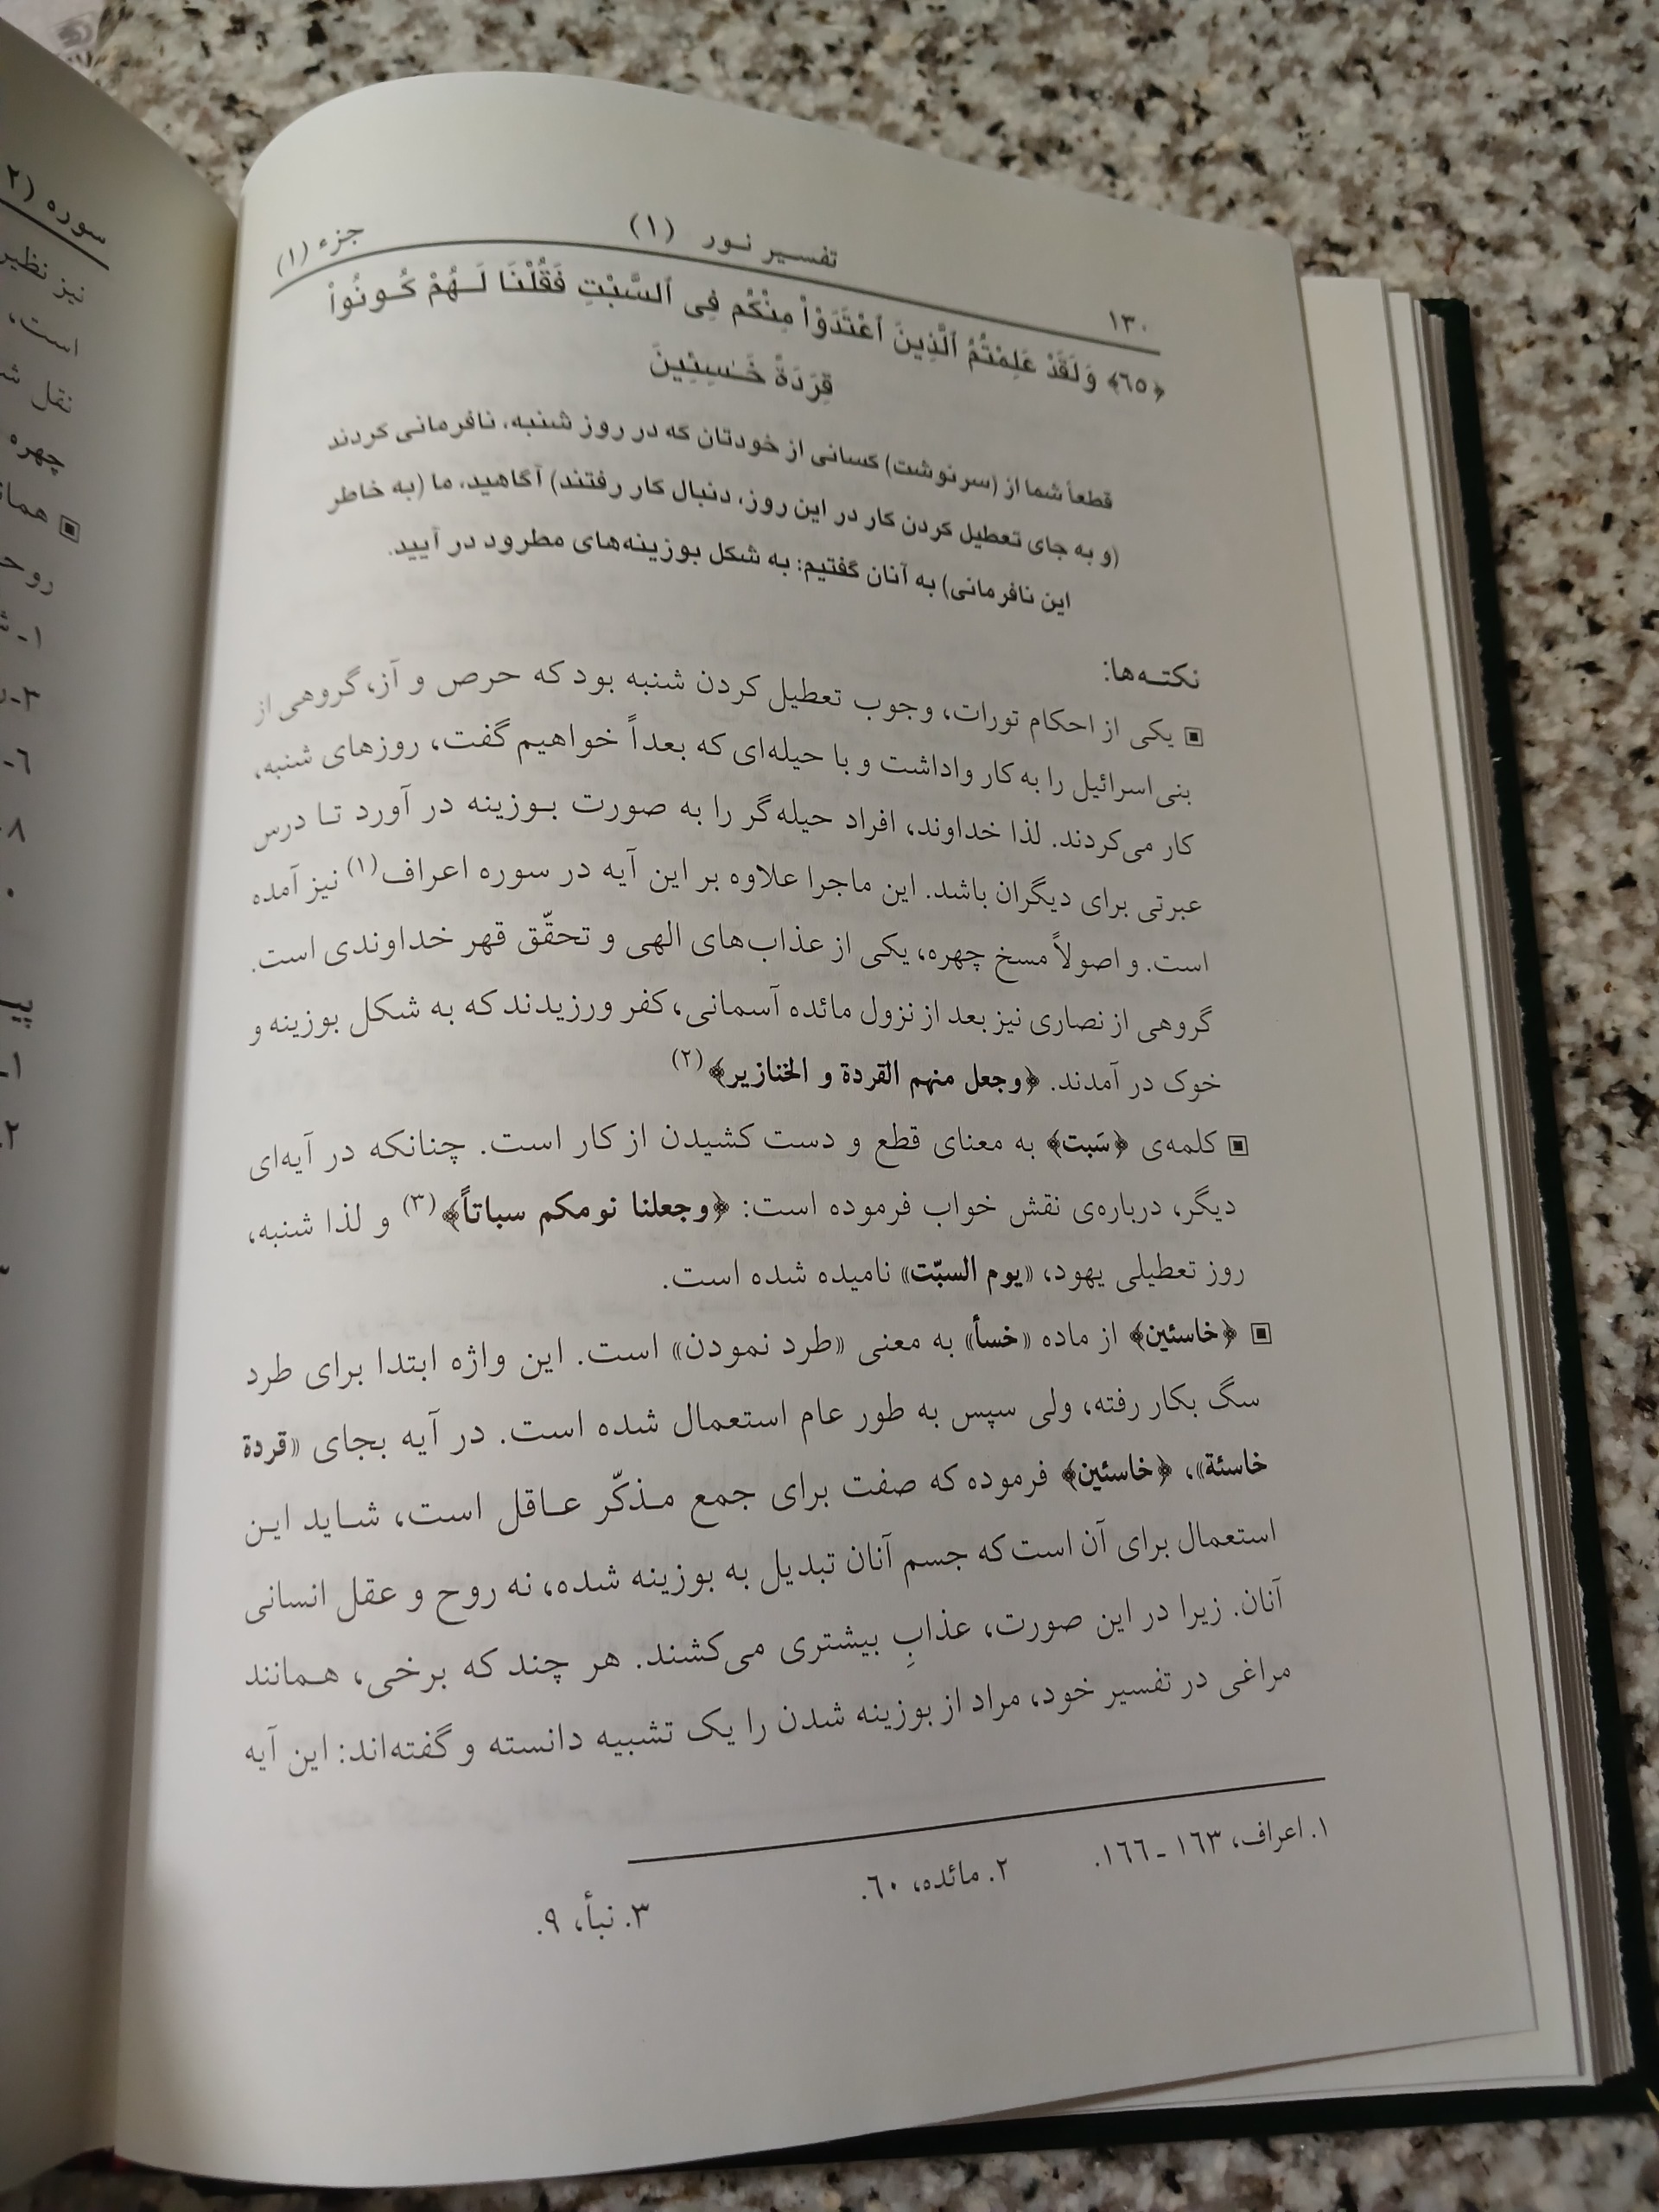 ۱۳۰ تفسیر نور (۱) جزء (۱)
﴿٦٥﴾ وَلَقَدْ عَلِمْتُمُ ٱلَّذِينَ ٱعْتَدَوْاْ مِنْكُم فِى ٱلسَّبْتِ فَقُلْنَا لَهُمْ كُونُواْ
قِرَدَةً خَٰسِئِينَ
قطعاً شما از (سرنوشت) کسانی از خودتان که در روز شنبه، نافرمانی کردند
(و به جای تعطیل کردن کار در این روز، دنبال کار رفتند) آگاهید، ما (به خاطر
این نافرمانی) به آنان گفتیم: به شکل بوزینه‌های مطرود در آیید.
نکته‌ها:
▣ یکی از احکام تورات، وجوب تعطیل کردن شنبه بود که حرص و آز، گروهی از
بنی‌اسرائیل را به کار واداشت و با حیله‌ای که بعداً خواهیم گفت، روزهای شنبه،
کار می‌کردند. لذا خداوند، افراد حیله‌گر را به صورت بوزینه در آورد تا درس
عبرتی برای دیگران باشد. این ماجرا علاوه بر این آیه در سوره اعراف(۱) نیز آمده
است. و اصولاً مسخ چهره، یکی از عذاب‌های الهی و تحقّق قهر خداوندی است.
گروهی از نصاری نیز بعد از نزول مائده آسمانی، کفر ورزیدند که به شکل بوزینه و
خوک در آمدند. ﴿وجعل منهم القردة و الخنازیر﴾(۲)
▣ کلمه‌ی ﴿سَبت﴾ به معنای قطع و دست کشیدن از کار است. چنانکه در آیه‌ای
دیگر، درباره‌ی نقش خواب فرموده است: ﴿وجعلنا نومکم سباتاً﴾(۳) و لذا شنبه،
روز تعطیلی یهود، «یوم السبّت» نامیده شده است.
▣ ﴿خاسئین﴾ از ماده «خسأ» به معنی «طرد نمودن» است. این واژه ابتدا برای طرد
سگ بکار رفته، ولی سپس به طور عام استعمال شده است. در آیه بجای «قردة
خاسئة»، ﴿خاسئین﴾ فرموده که صفت برای جمع مذکّر عاقل است، شاید این
استعمال برای آن است که جسم آنان تبدیل به بوزینه شده، نه روح و عقل انسانی
آنان. زیرا در این صورت، عذابِ بیشتری می‌کشند. هر چند که برخی، همانند
مراغی در تفسیر خود، مراد از بوزینه شدن را یک تشبیه دانسته و گفته‌اند: این آیه
۱. اعراف، ۱۶۳ ـ ۱۶۶. ۲. مائده، ۶۰. ۳. نبأ، ۹.
سوره (۲
نیز نظیر
است،
نقل
چهره
▣
۱ـ
۳ـ
۶ـ
۸
۱ـ
۲